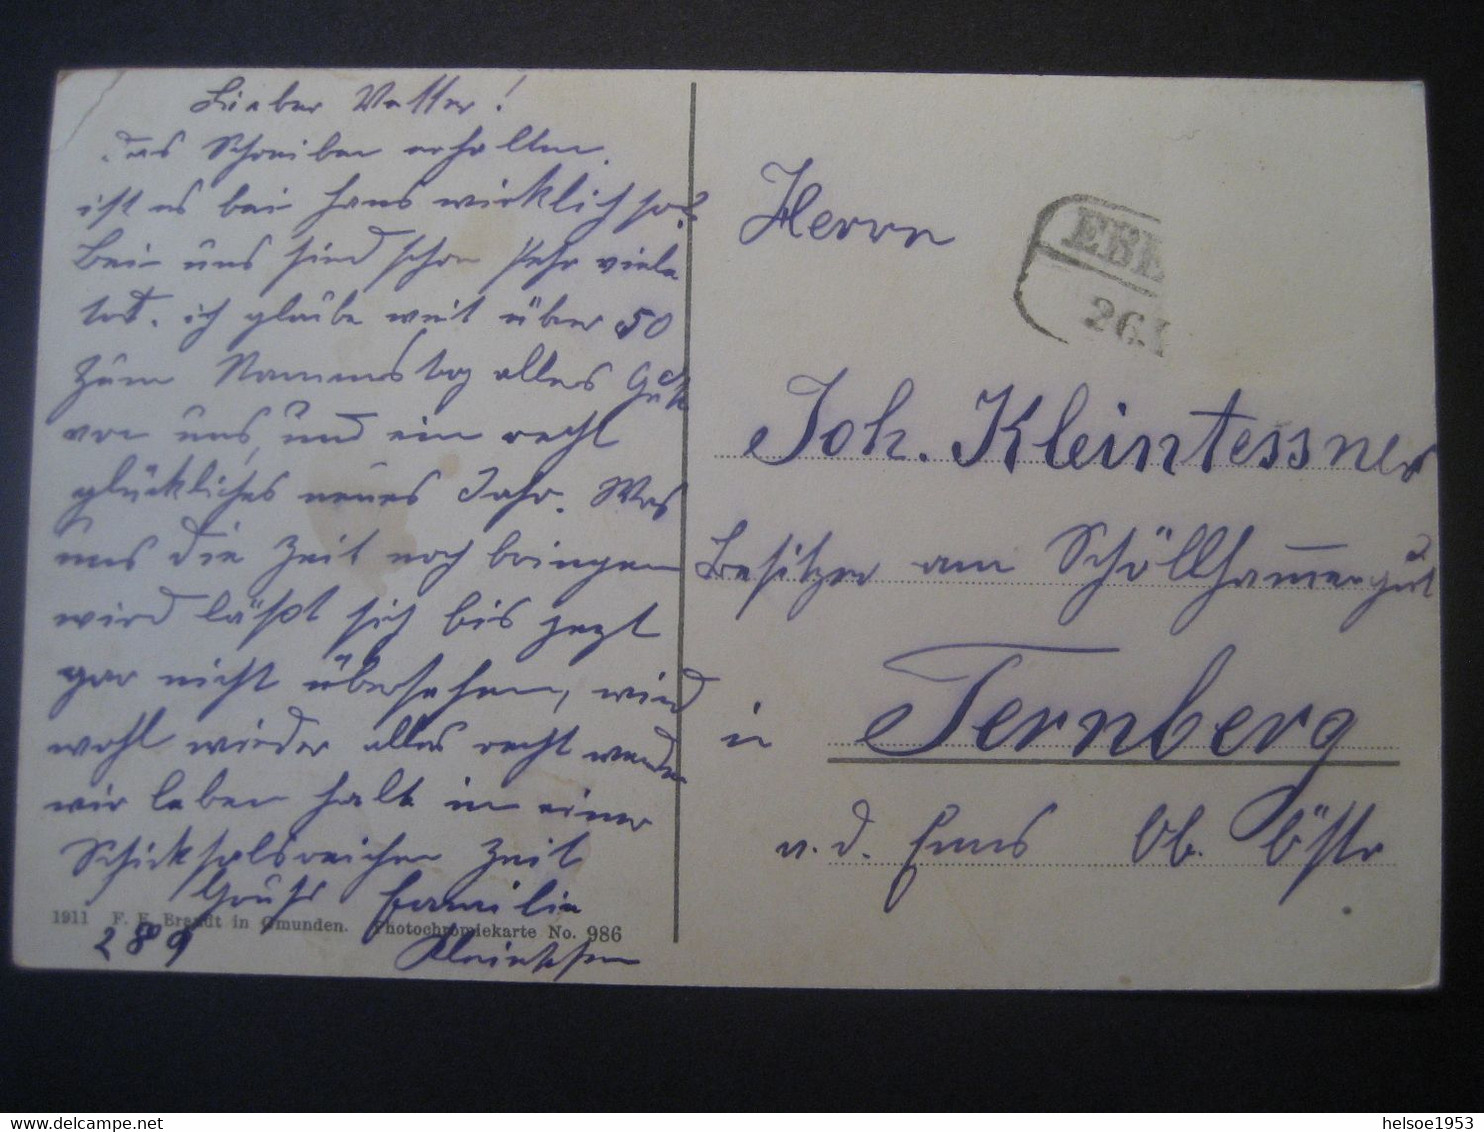 Lieber Vetter!
das Schreiben erhalten.
ist es bei Hans wirklich so?
Bei uns sind schon sehr viele
tot. ich glaube weit über 50
Zum Nammenstag alles Gute
von uns, und ein recht
glückliches neues Jahr. Was
uns die Zeit noch bringen
wird läßt sich bis jezt
gar nicht übersehen, wird
wohl wieder alles recht werden
wir leben halt in einer
Schicksalsreichen Zeit
Gruß Familie
1911 F. E. Brandt in Gmunden. Photochromiekarte No. 986
289
Herrn
EBE
26.1
Joh. Kleintessner
Besitzer am Schöllhammergut
in Ternberg
a. d. Enns Ob. Östr
helsoe1953